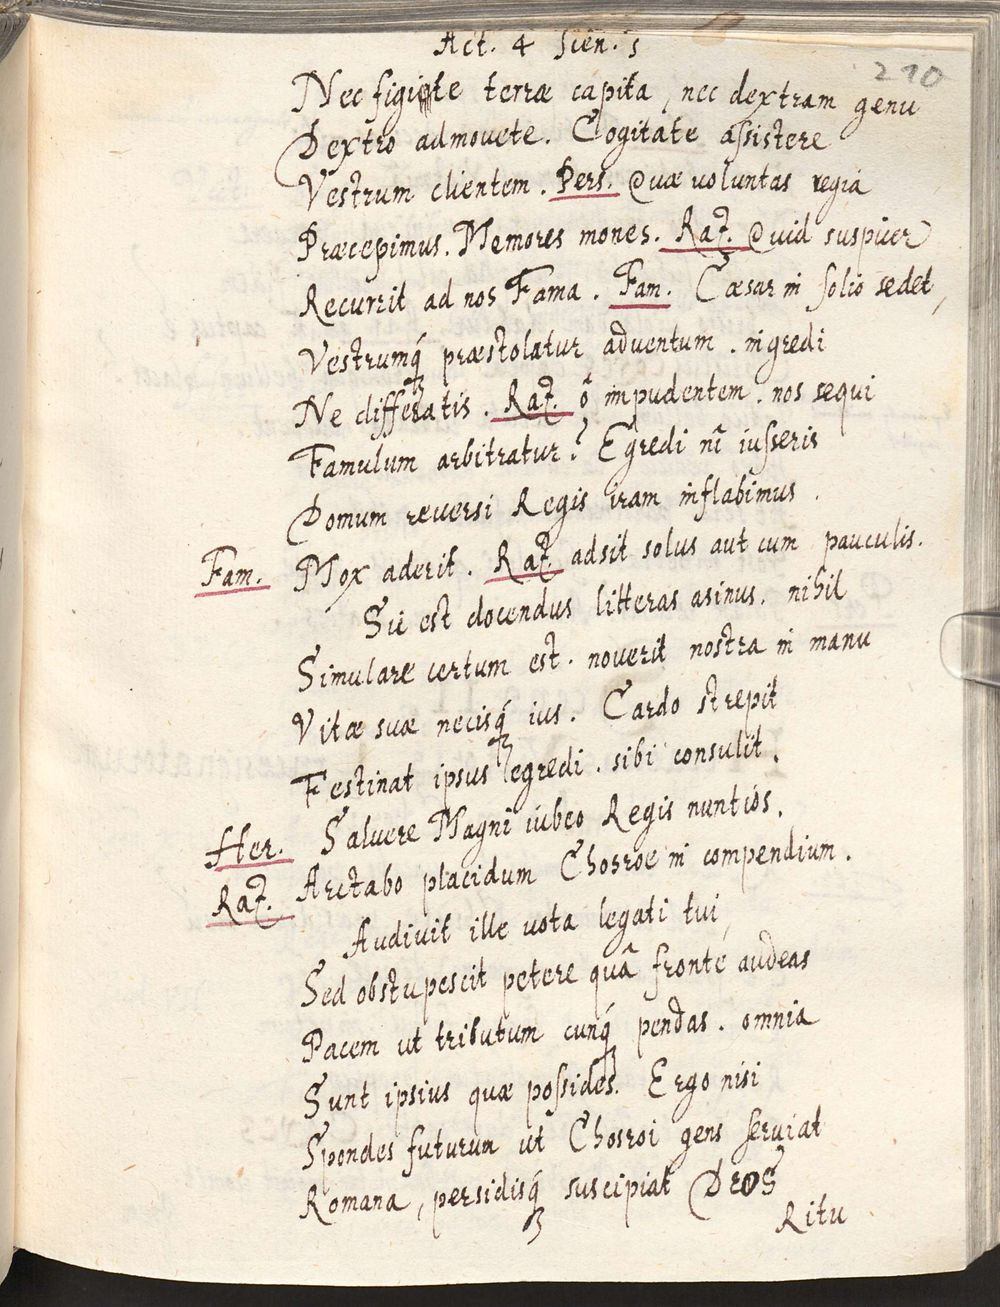 Act. 4 Scen. 5
210
Nec figite terræ capita, nec dextram genu
Dextro admouete. Cogitate assistere
Vestrum clientem. Pers. Quæ uoluntas regia
Præcepimus. Memores mones. Raz. Quid suspicer
Recurrit ad nos Fama. Fam. Cæsar in solio sedet,
Vestrumq́ præstolatur aduentum. ingredi
Ne differatis. Raz. ô impudentem. nos sequi
Famulum arbitratur? Egredi ni iusseris
Domum reuersi Regis iram inflabimus.
Fam. Mox aderit. Raz. adsit solus aut cum pauculis.
Sic est docendus litteras asinus. nihil
Simulare certum est. nouerit nostra in manu
Vitæ suæ necisq́ ius. Cardo strepit
Festinat ipsus egredi. sibi consulit.
Her. Saluere Magni iubeo Regis nuntios.
Raz. Arctabo placidum Chosroe in compendium.
Audiuit ille uota legati tui,
Sed obstupescit petere quâ fronte audeas
Pacem ut tributum cunq́ pendas. omnia
Sunt ipsius quæ possides. Ergo nisi
Spondes futurum ut Chosroi gens seruiat
Romana, persidisq́ suscipiat Deos
Ritu